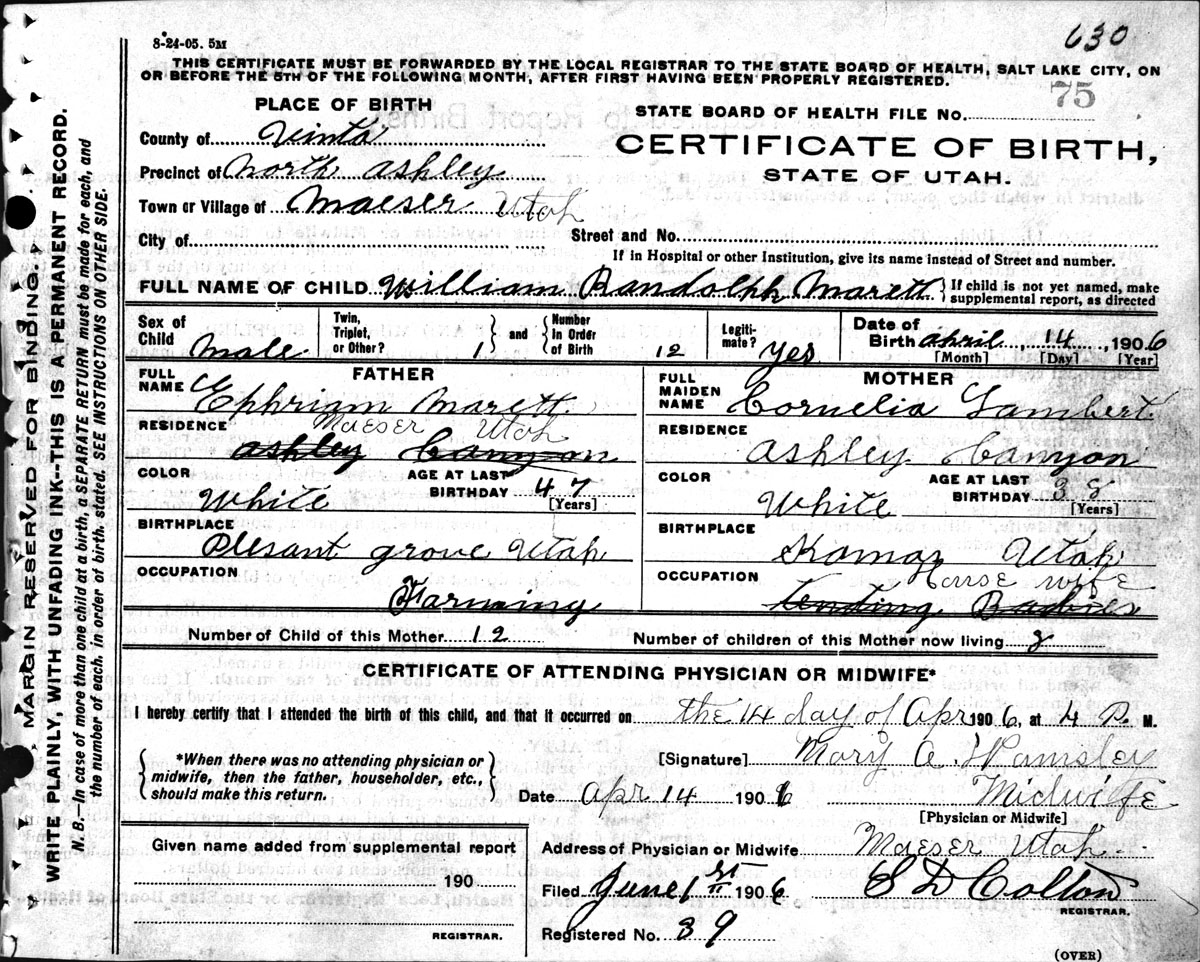 8-24-05. 5M
630
THIS CERTIFICATE MUST BE FORWARDED BY THE LOCAL REGISTRAR TO THE STATE BOARD OF HEALTH, SALT LAKE CITY, ON
OR BEFORE THE 5TH OF THE FOLLOWING MONTH, AFTER FIRST HAVING BEEN PROPERLY REGISTERED.
75
PLACE OF BIRTH
STATE BOARD OF HEALTH FILE NO.
County of Uinta
CERTIFICATE OF BIRTH,
Precinct of North Ashley
STATE OF UTAH.
Town or Village of Maeser Utah
City of
Street and No.
If in Hospital or other Institution, give its name instead of Street and number.
FULL NAME OF CHILD William Randolph Marett } If child is not yet named, make supplemental report, as directed
Sex of Child Male Twin, Triplet, or Other? 1 } and { Number in Order of Birth 12 Legiti-mate? Yes Date of Birth April, 14, 1906
[Month] [Day] [Year]
FATHER
MOTHER
FULL NAME Ephriam Marett
FULL MAIDEN NAME Cornelia Lambert
RESIDENCE Maeser Utah
Ashley Canyon
RESIDENCE
Ashley Canyon
COLOR White AGE AT LAST BIRTHDAY 47 [Years]
COLOR White AGE AT LAST BIRTHDAY 38 [Years]
BIRTHPLACE
Plesant grove Utah
BIRTHPLACE
Kamaz Utah
OCCUPATION
Farming
OCCUPATION House wife
tending Babies
Number of Child of this Mother 12
Number of children of this Mother now living
CERTIFICATE OF ATTENDING PHYSICIAN OR MIDWIFE*
I hereby certify that I attended the birth of this child, and that it occurred on the 14 day of Apr 1906, at 4 P. M.
{ *When there was no attending physician or
midwife, then the father, householder, etc.,
should make this return. }
[Signature] Mary A. Wamsley
Date Apr 14 1906 Midwife
[Physician or Midwife]
Given name added from supplemental report
190
REGISTRAR.
Address of Physician or Midwife Maeser Utah
Filed June 1st 1906 S D Colton
REGISTRAR.
Registered No. 39
(OVER)
MARGIN RESERVED FOR BINDING.
WRITE PLAINLY, WITH UNFADING INK--THIS IS A PERMANENT RECORD.
N. B.—In case of more than one child at a birth, a SEPARATE RETURN must be made for each, and
the number of each, in order of birth, stated. SEE INSTRUCTIONS ON OTHER SIDE.